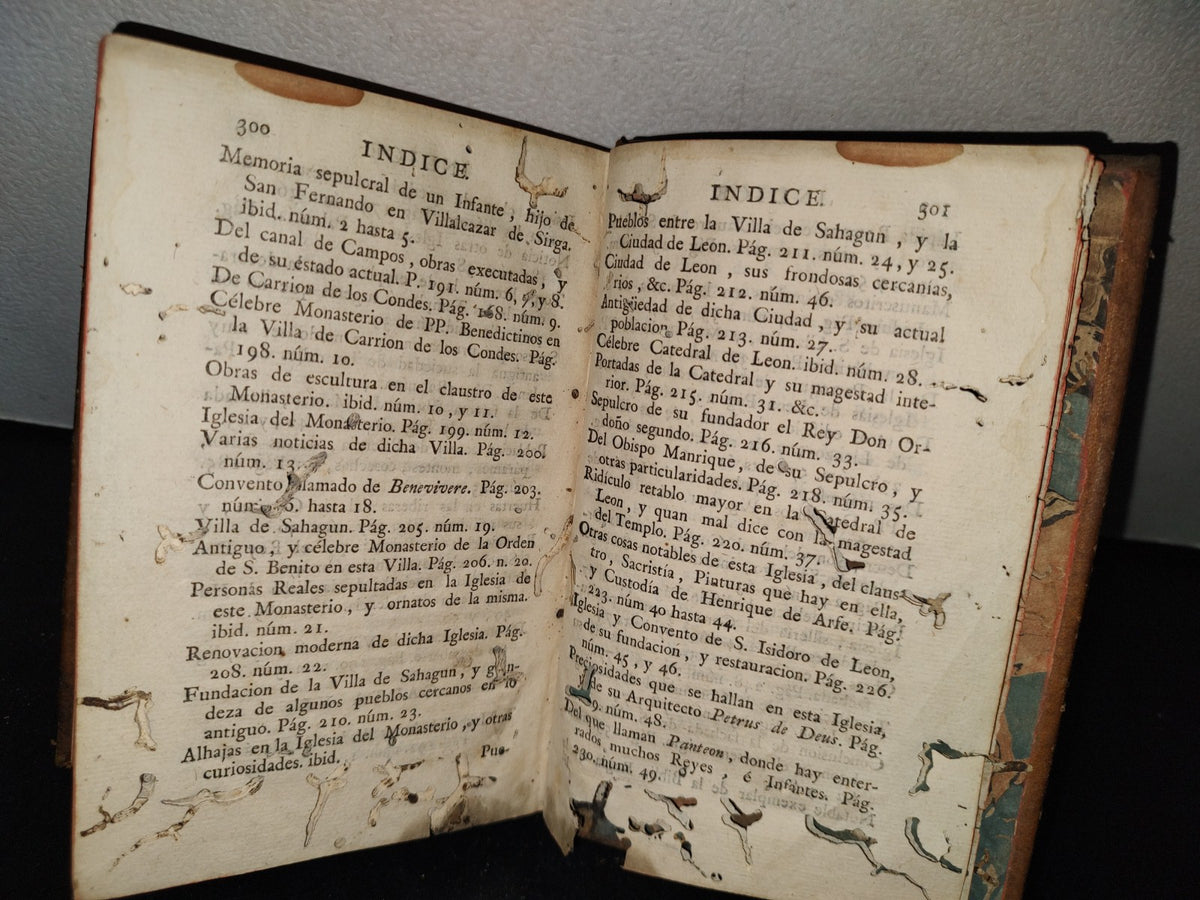 300
INDICE
Memoria sepulcral de un Infante, hijo de
San Fernando en Villalcazar de Sirga.
ibid. núm. 2 hasta 5.
Del canal de Campos, obras executadas, y
de su estado actual. P. 191. núm. 6, 7, y 8.
De Carrion de los Condes. Pág. núm. 9.
Célebre Monasterio de PP. Benedictinos en
la Villa de Carrion de los Condes. Pág.
198. núm. 10.
Obras de escultura en el claustro de este
Monasterio. ibid. núm. 10, y 11.
Iglesia del Monasterio. Pág. 199. núm. 12.
Varias noticias de dicha Villa. Pág. 200.
núm. 13.
Convento llamado de Benevivere. Pág. 203.
núm. hasta 18.
Villa de Sahagun. Pág. 205. núm. 19.
Antiguo, y célebre Monasterio de la Orden
de S. Benito en esta Villa. Pág. 206. n. 20.
Personas Reales sepultadas en la Iglesia de
este Monasterio, y ornatos de la misma.
ibid. núm. 21.
Renovacion moderna de dicha Iglesia. Pág.
208. núm. 22.
Fundacion de la Villa de Sahagun, y gran-
deza de algunos pueblos cercanos en lo
antiguo. Pág. 210. núm. 23.
Alhajas en la Iglesia del Monasterio, y otras
curiosidades. ibid.
Pue-
INDICE
301
Pueblos entre la Villa de Sahagun, y la
Ciudad de Leon. Pág. 211. núm. 24, y 25.
Ciudad de Leon, sus frondosas cercanías,
rios, &c. Pág. 212. núm. 46.
Antigüedad de dicha Ciudad, y su actual
poblacion. Pág. 213. núm. 27.
Célebre Catedral de Leon. ibid. núm. 28.
Portadas de la Catedral y su magestad inte-
rior. Pág. 215. núm. 31. &c.
Sepulcro de su fundador el Rey Don Or-
doño segundo. Pág. 216. núm. 33.
Del Obispo Manrique, de su Sepulcro, y
otras particularidades. Pág. 218. núm. 35.
Ridículo retablo mayor en la Catedral de
Leon, y quan mal dice con la magestad
del Templo. Pág. 220. núm. 37.
Otras cosas notables de esta Iglesia, del claus-
tro, Sacristía, Pinturas que hay en ella,
y Custodía de Henrique de Arfe. Pág.
223. núm 40 hasta 44.
Iglesia y Convento de S. Isidoro de Leon,
de su fundacion, y restauracion. Pág. 226.
núm. 45, y 46.
Preciosidades que se hallan en esta Iglesia,
y de su Arquitecto Petrus de Deus. Pág.
núm. 48.
Del que llaman Panteon, donde hay enter-
rados muchos Reyes, é Infantes. Pág.
230. núm. 49.